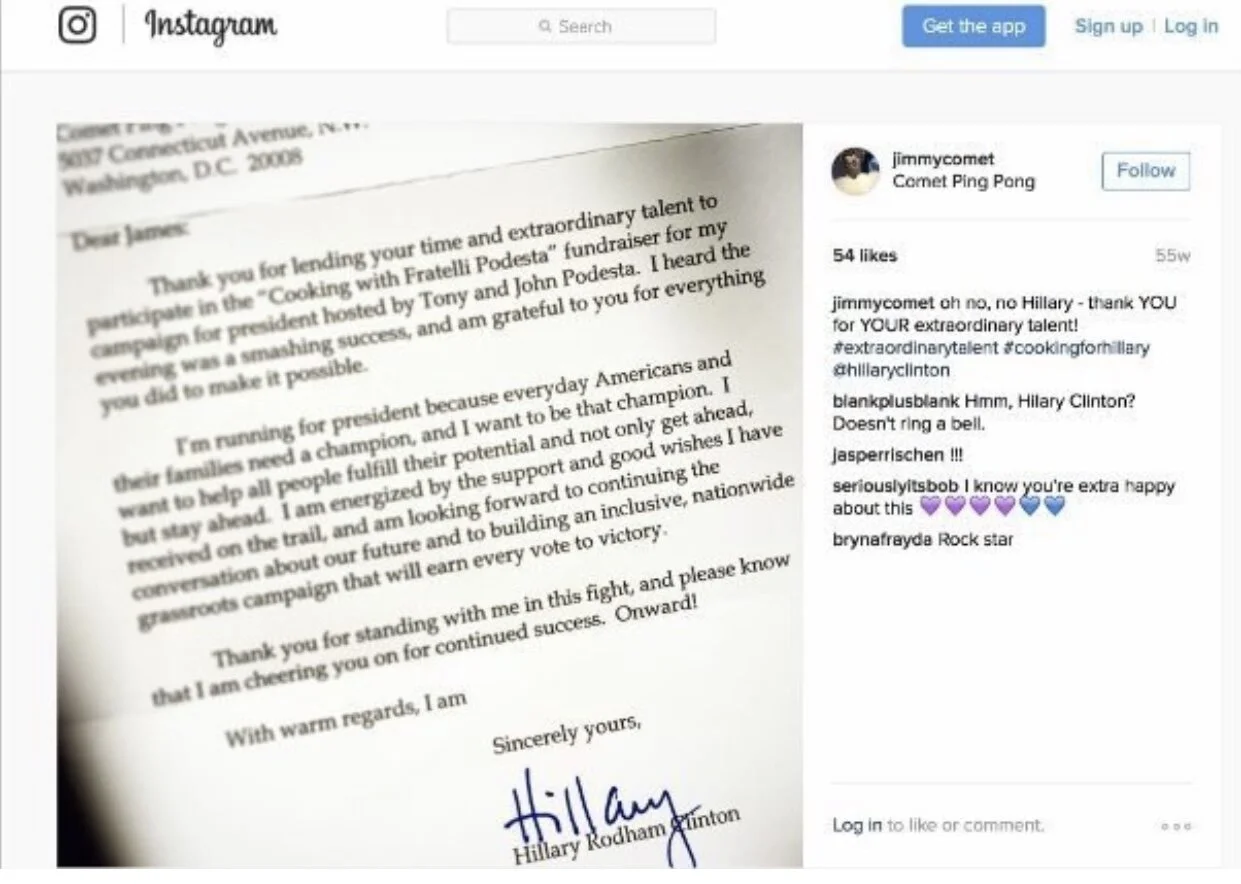 Instagram
Search
Get the app
Sign up | Log in
Comet Ping
5037 Connecticut Avenue, N.W.
Washington, D.C. 20008
Dear James:
Thank you for lending your time and extraordinary talent to
participate in the "Cooking with Fratelli Podesta" fundraiser for my
campaign for president hosted by Tony and John Podesta. I heard the
evening was a smashing success, and am grateful to you for everything
you did to make it possible.
I'm running for president because everyday Americans and
their families need a champion, and I want to be that champion. I
want to help all people fulfill their potential and not only get ahead,
but stay ahead. I am energized by the support and good wishes I have
received on the trail, and am looking forward to continuing the
conversation about our future and to building an inclusive, nationwide
grassroots campaign that will earn every vote to victory.
Thank you for standing with me in this fight, and please know
that I am cheering you on for continued success. Onward!
With warm regards, I am
Sincerely yours,
Hillary
Hillary Rodham Clinton
jimmycomet
Comet Ping Pong
Follow
54 likes
55w
jimmycomet oh no, no Hillary - thank YOU
for YOUR extraordinary talent!
#extraordinarytalent #cookingforhillary
@hillaryclinton
blankplusblank Hmm, Hilary Clinton?
Doesn't ring a bell.
jasperrischen !!!
seriouslyitsbob I know you're extra happy
about this 💜💜💜💜💙💙
brynafrayda Rock star
Log in to like or comment.